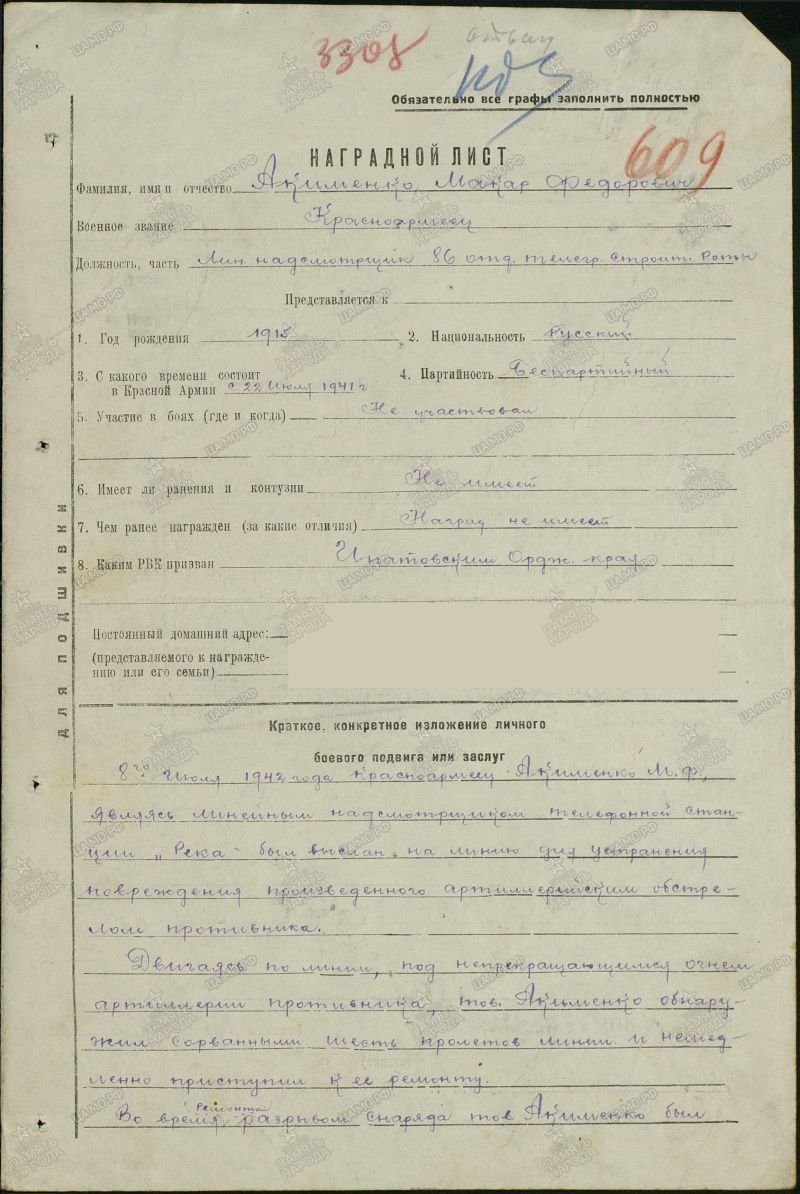 3308
отваг
Обязательно все графы заполнить полностью
НАГРАДНОЙ ЛИСТ
609
Фамилия, имя и отчество Акименко, Макар Федорович
Военное звание Красноармеец
Должность, часть Лин. надсмотрщик 86 отд. телегр. строит. роты
Представляется к
1. Год рождения 1915
2. Национальность Русский
3. С какого времени состоит
в Красной Армии с 22 Июля 1941 г
4. Партийность Беспартийный
5. Участие в боях (где и когда) Не участвовал
6. Имеет ли ранения и контузии Не имеет
7. Чем ранее награжден (за какие отличия) Наград не имеет
8. Каким РВК призван Ипатовским Ордж. края
Постоянный домашний адрес:
(представляемого к награжде-
нию или его семьи)
для подшивки
Краткое, конкретное изложение личного
боевого подвига или заслуг
8го Июля 1942 года Красноармеец Акименко М.Ф,
являясь линейным надсмотрщиком телефонной стан-
ции „Река" был выслан на линию для устранения
повреждения произведенного артиллерийским обстре-
лом противника.
Двигаясь по линии, под непрекращающимся огнем
артиллерии противника, тов. Акименко обнару-
жил сорванными шесть пролетов линии и немед-
ленно приступил к ее ремонту.
Во время ремонта разрывом снаряда тов. Акименко был